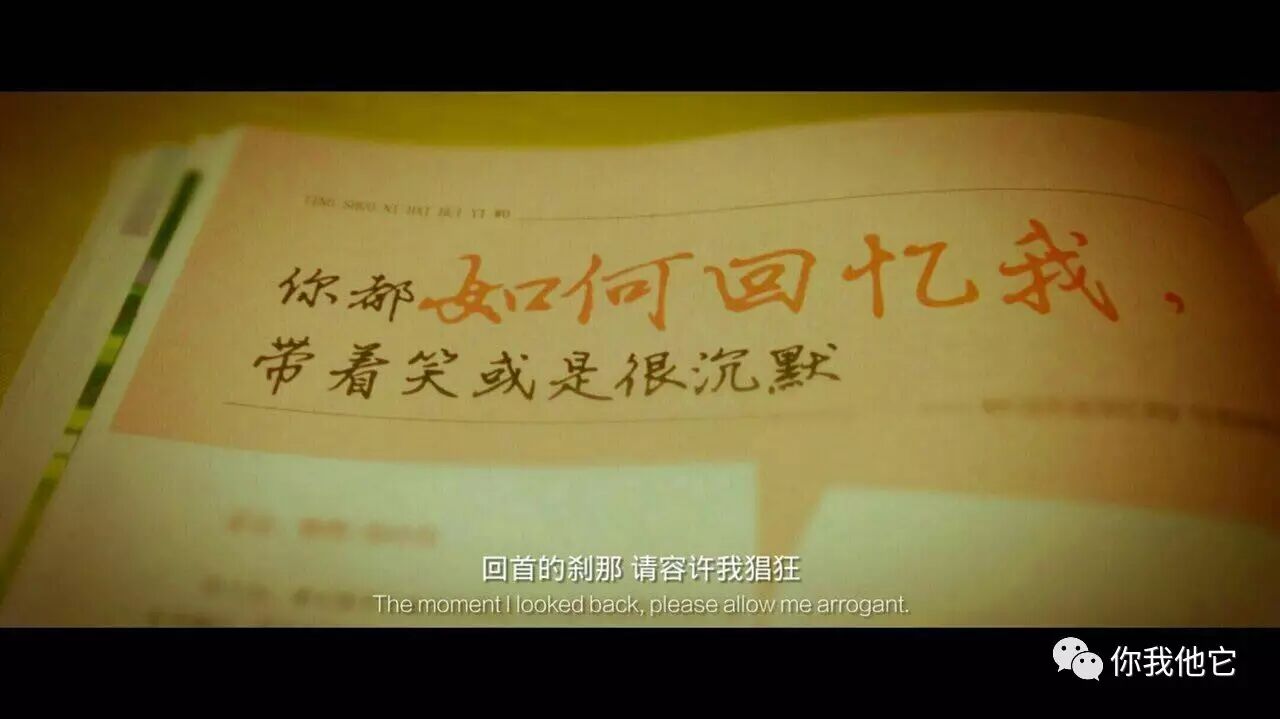 TING SHUO NI HAI HUI YI WO
你都如何回忆我，
带着笑或是很沉默
回首的刹那 请容许我猖狂
The moment I looked back, please allow me arrogant.
你我他它